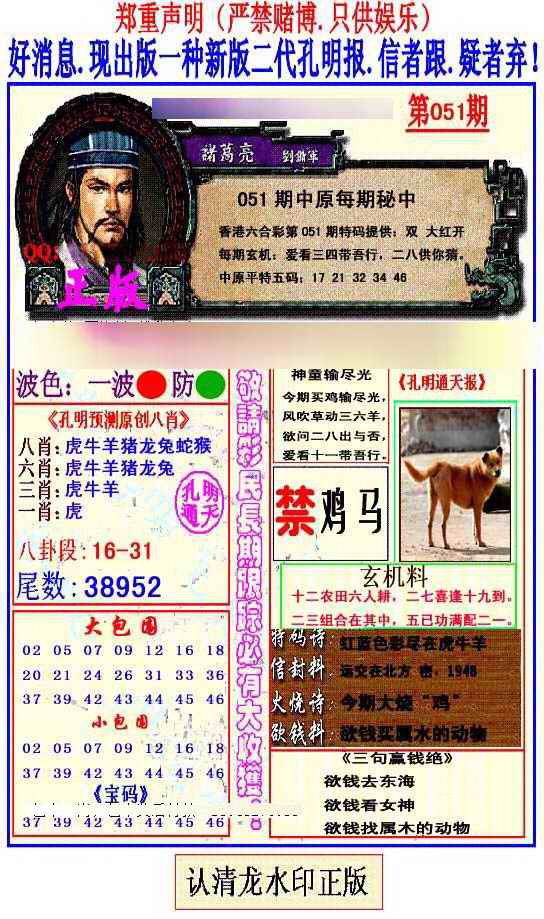 郑重声明（严禁赌博.只供娱乐）
好消息.现出版一种新版二代孔明报.信者跟.疑者弃!
第051期
諸葛亮
051 期中原每期秘中
香港六合彩第 051 期特码提供：双 大红开
每期玄机：爱看三四带吾行，二八供你猜。
中原平特五码：17 21 32 34 46
QQ:
正版
波色：一波 防
《孔明预测原创八肖》
八肖:虎牛羊猪龙兔蛇猴
六肖:虎牛羊猪龙兔
三肖:虎牛羊
一肖:虎
孔明
通天
八卦段:16-31
尾数:38952
大包围
02 05 07 09 12 16 18
20 21 24 26 31 33 36
37 39 42 43 44 45 46
小包围
02 05 07 09 12 16 18
37 39 42 43 44 45 46
《宝码》
37 39 42 43 44 45 46
敬請彩民長期跟踪必有大收獲!
神童输尽光
今期买鸡输尽光，
风吹草动三六羊，
欲问二八出与否，
爱看十一带吾行。
《孔明通天报》
禁鸡马
玄机料
十二农田六人耕，二七喜逢十九到。
二三组合在其中，五已功满配二一。
特码诗:虹蓝色彩尽在虎牛羊
信封料:运交在北方 密，1948
火烧诗:今期大烧“鸡”
欲钱料:欲钱买属水的动物
《三句赢钱绝》
欲钱去东海
欲钱看女神
欲钱找属木的动物
认清龙水印正版